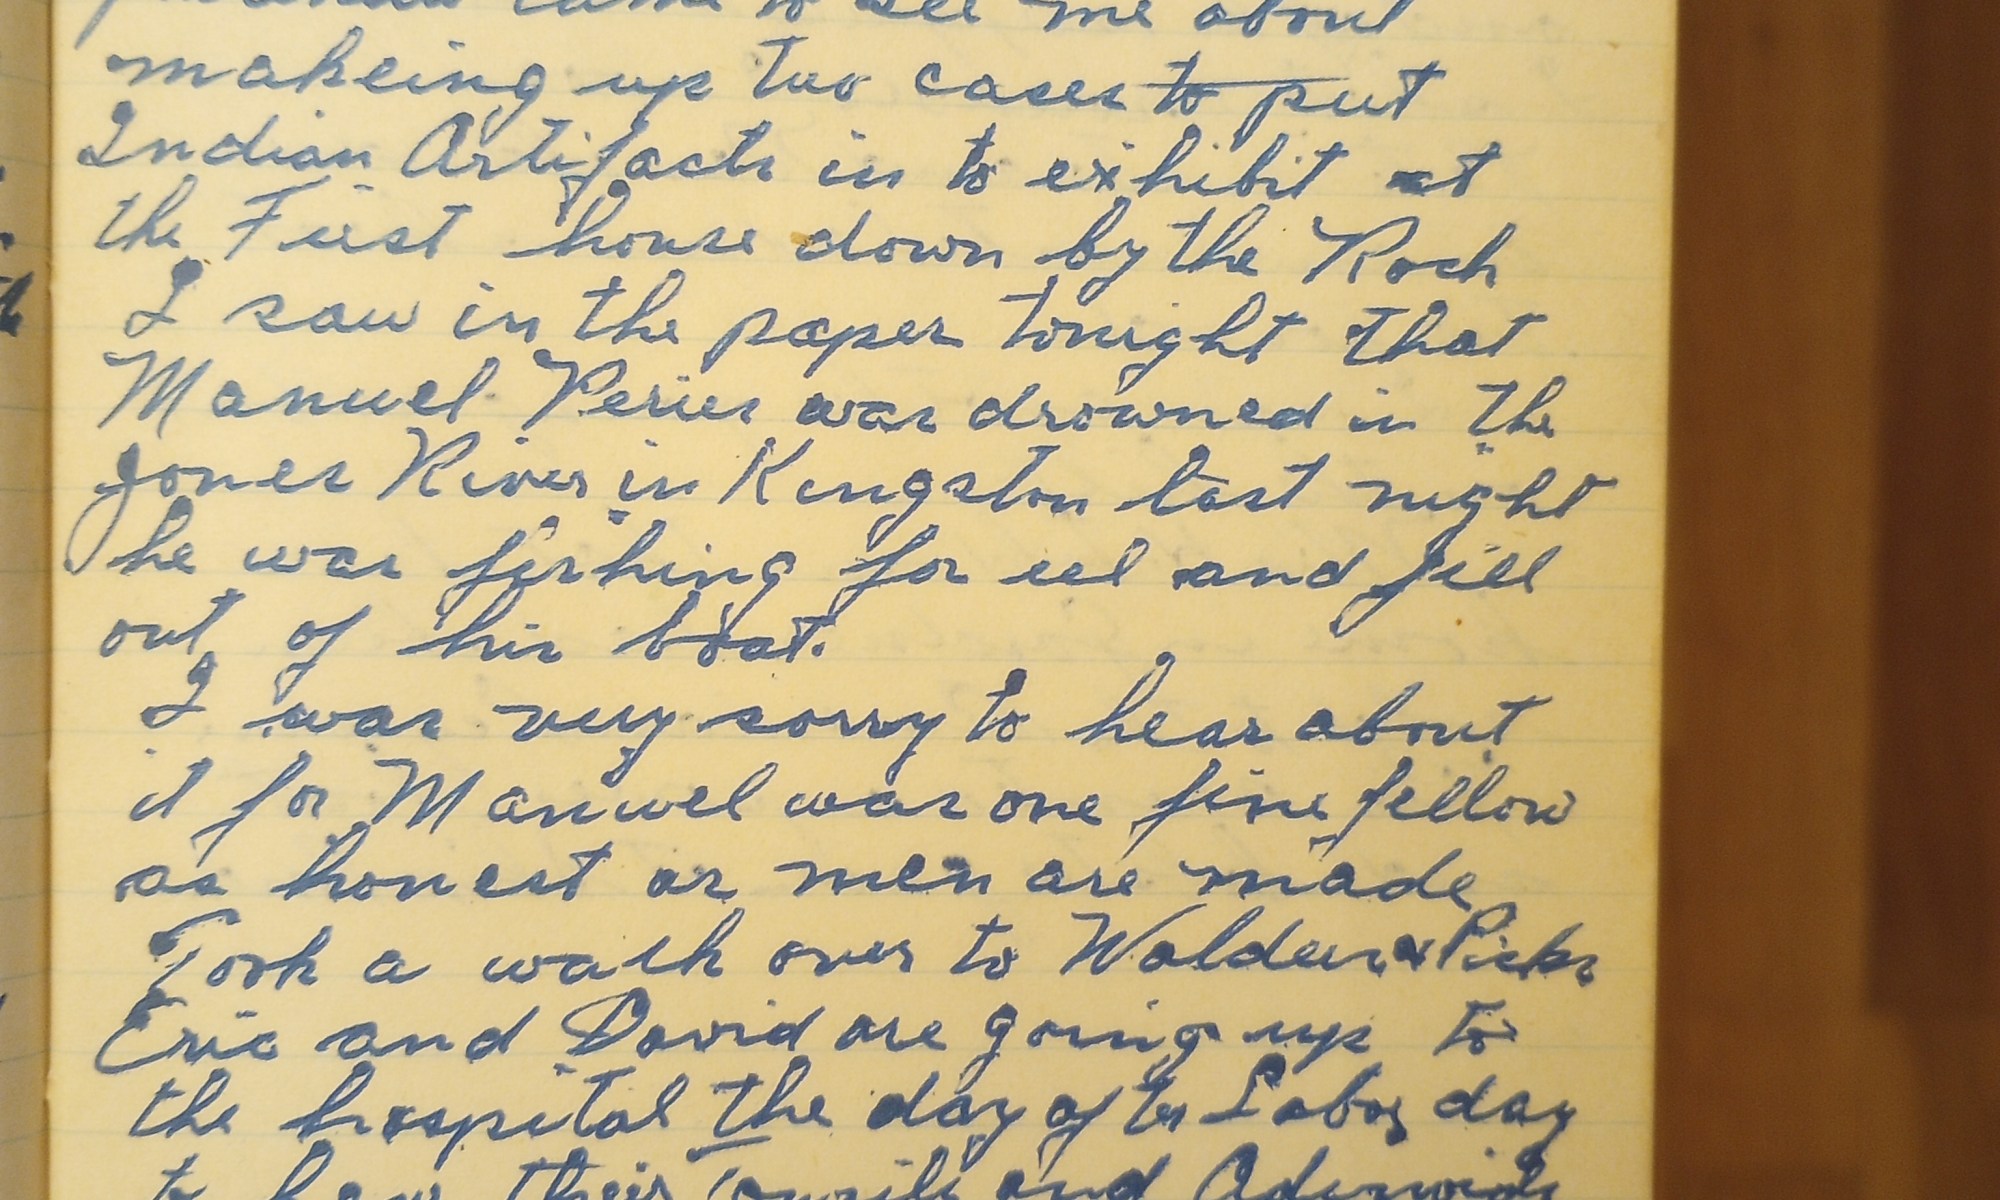 came to see me about
makeing up two cases to put
Indian Artifacts in to exhibit at
the First house down by the Rock
I saw in the paper tonight that
Manuel Perier was drowned in the
Jones River in Kingston last night
he was fishing for eel and fell
out of his boat.
I was very sorry to hear about
it for Manuel was one fine fellow
as honest as men are made
Took a walk over to Walden &
Eric and David are going up to
the hospital the day after Labor day
to have their tonsils and Adenoids